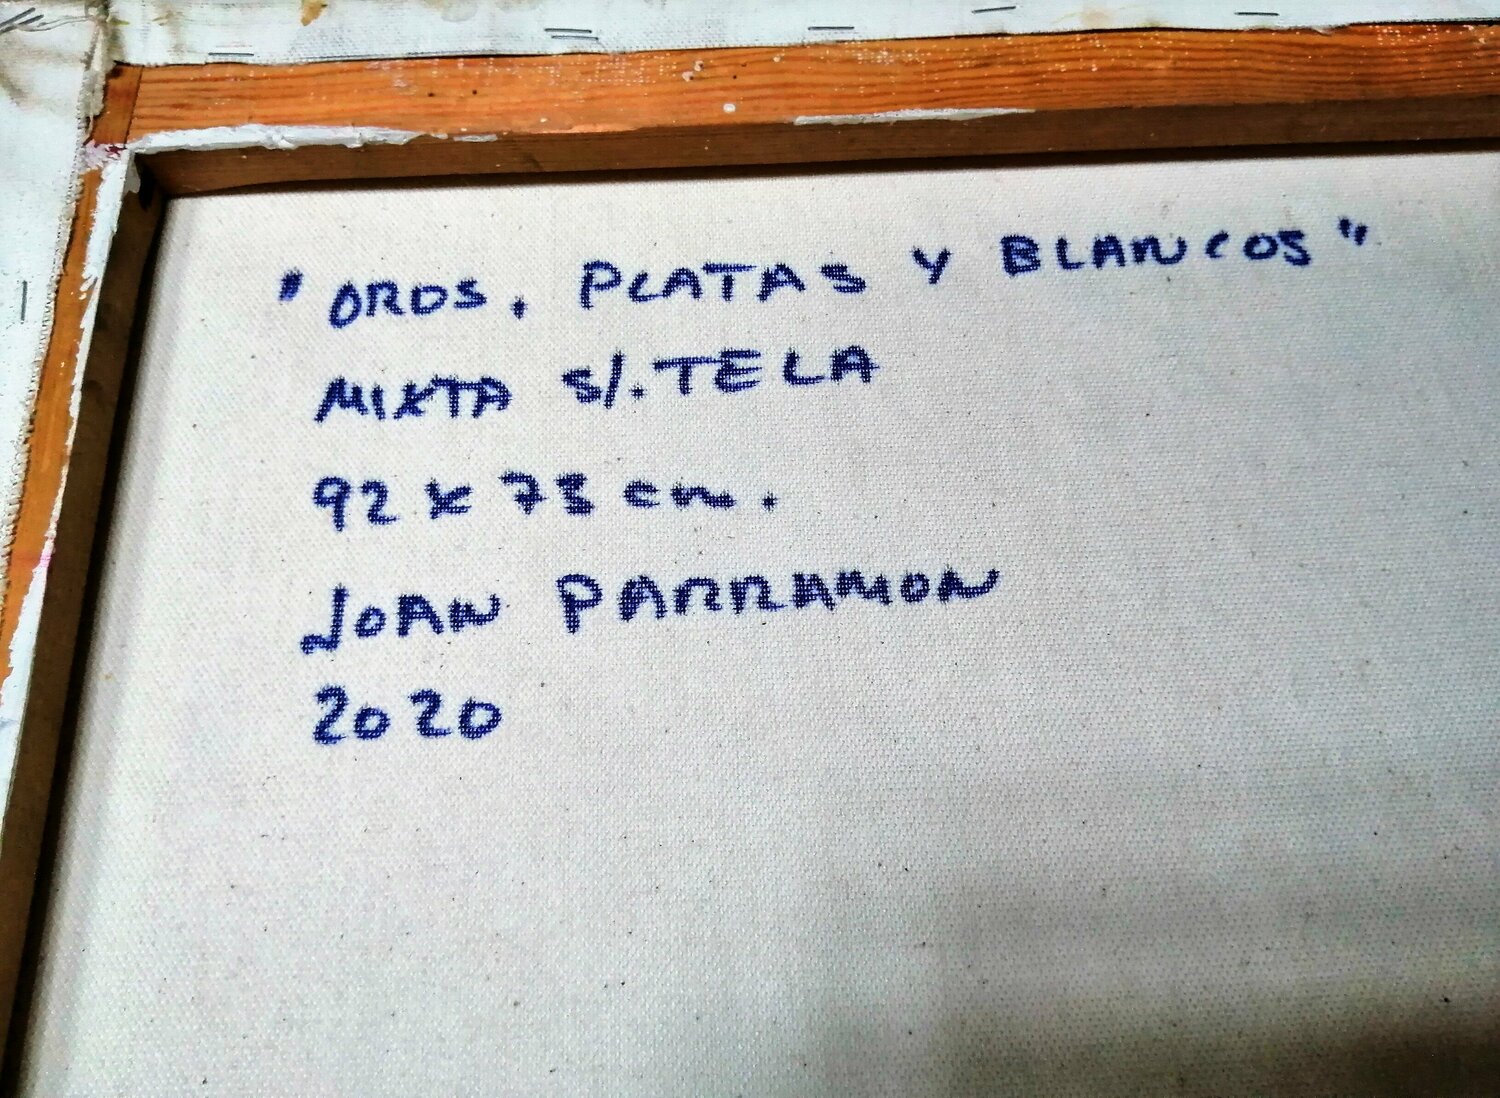 "OROS, PLATAS Y BLANCOS"
MIXTA S/. TELA
92 x 73 cm.
JOAN PARRAMON
2020